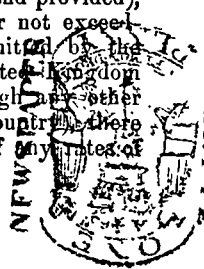 and provided),
r not exceed-
mitted by the
ted Kingdom
gh any other
ountry, there
f any rates of
NEWSPAPER